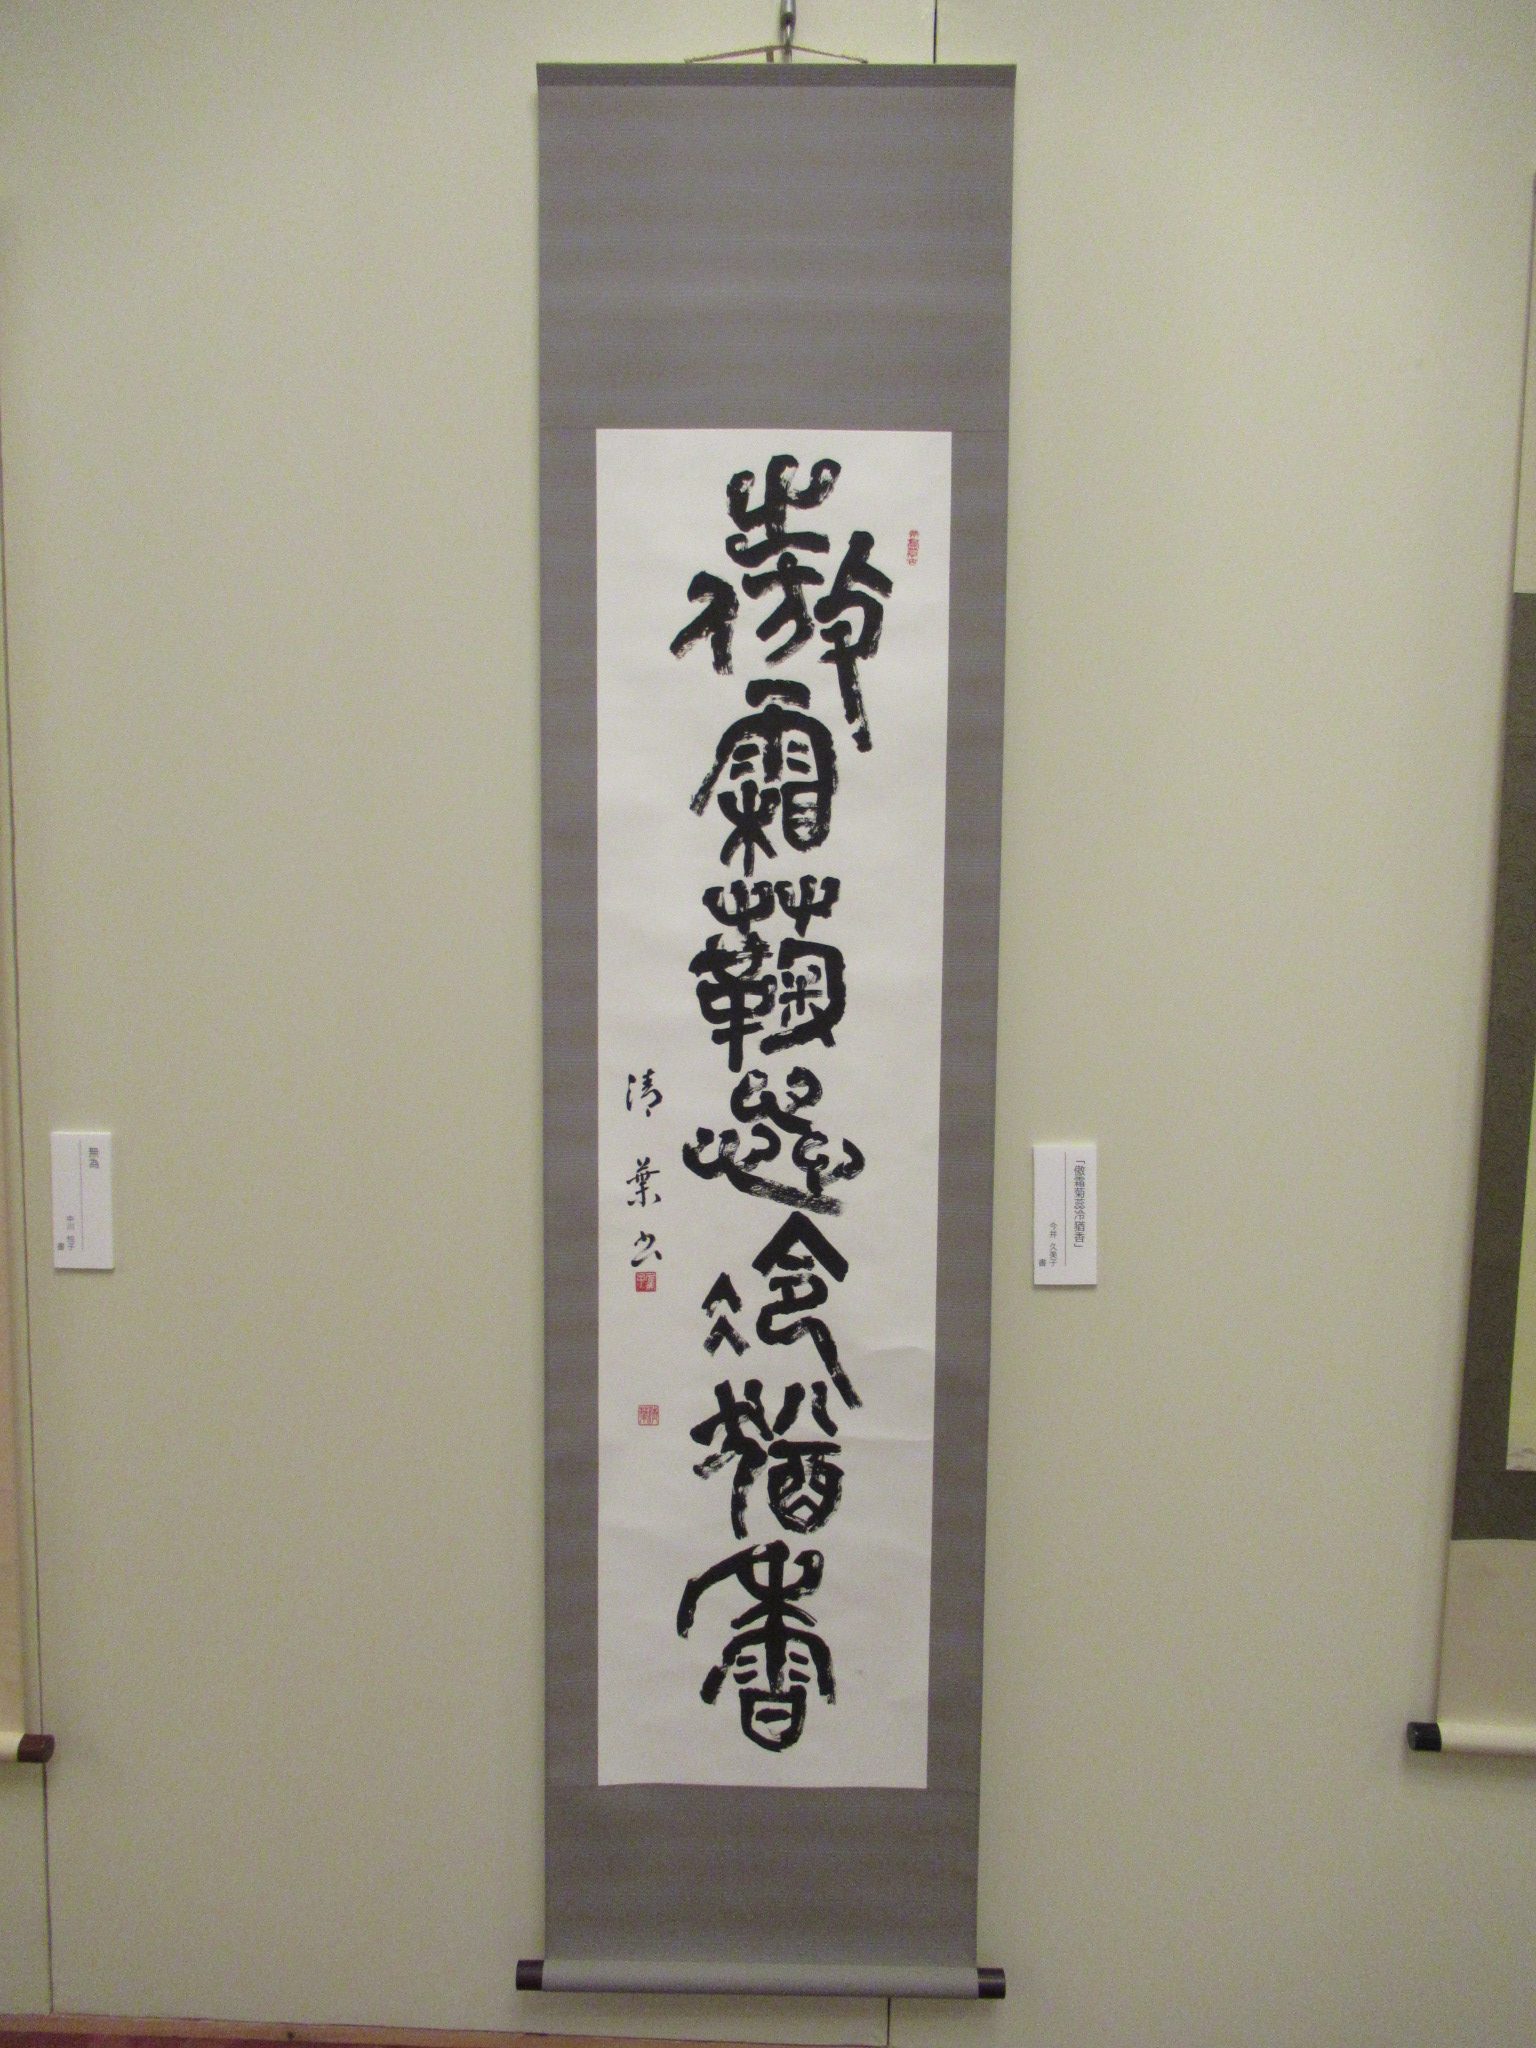 傲霜菊蕊冷猶香
清葉書
「傲霜菊蕊冷猶香」
今井 久美子
書
無為
中川 恒子
書